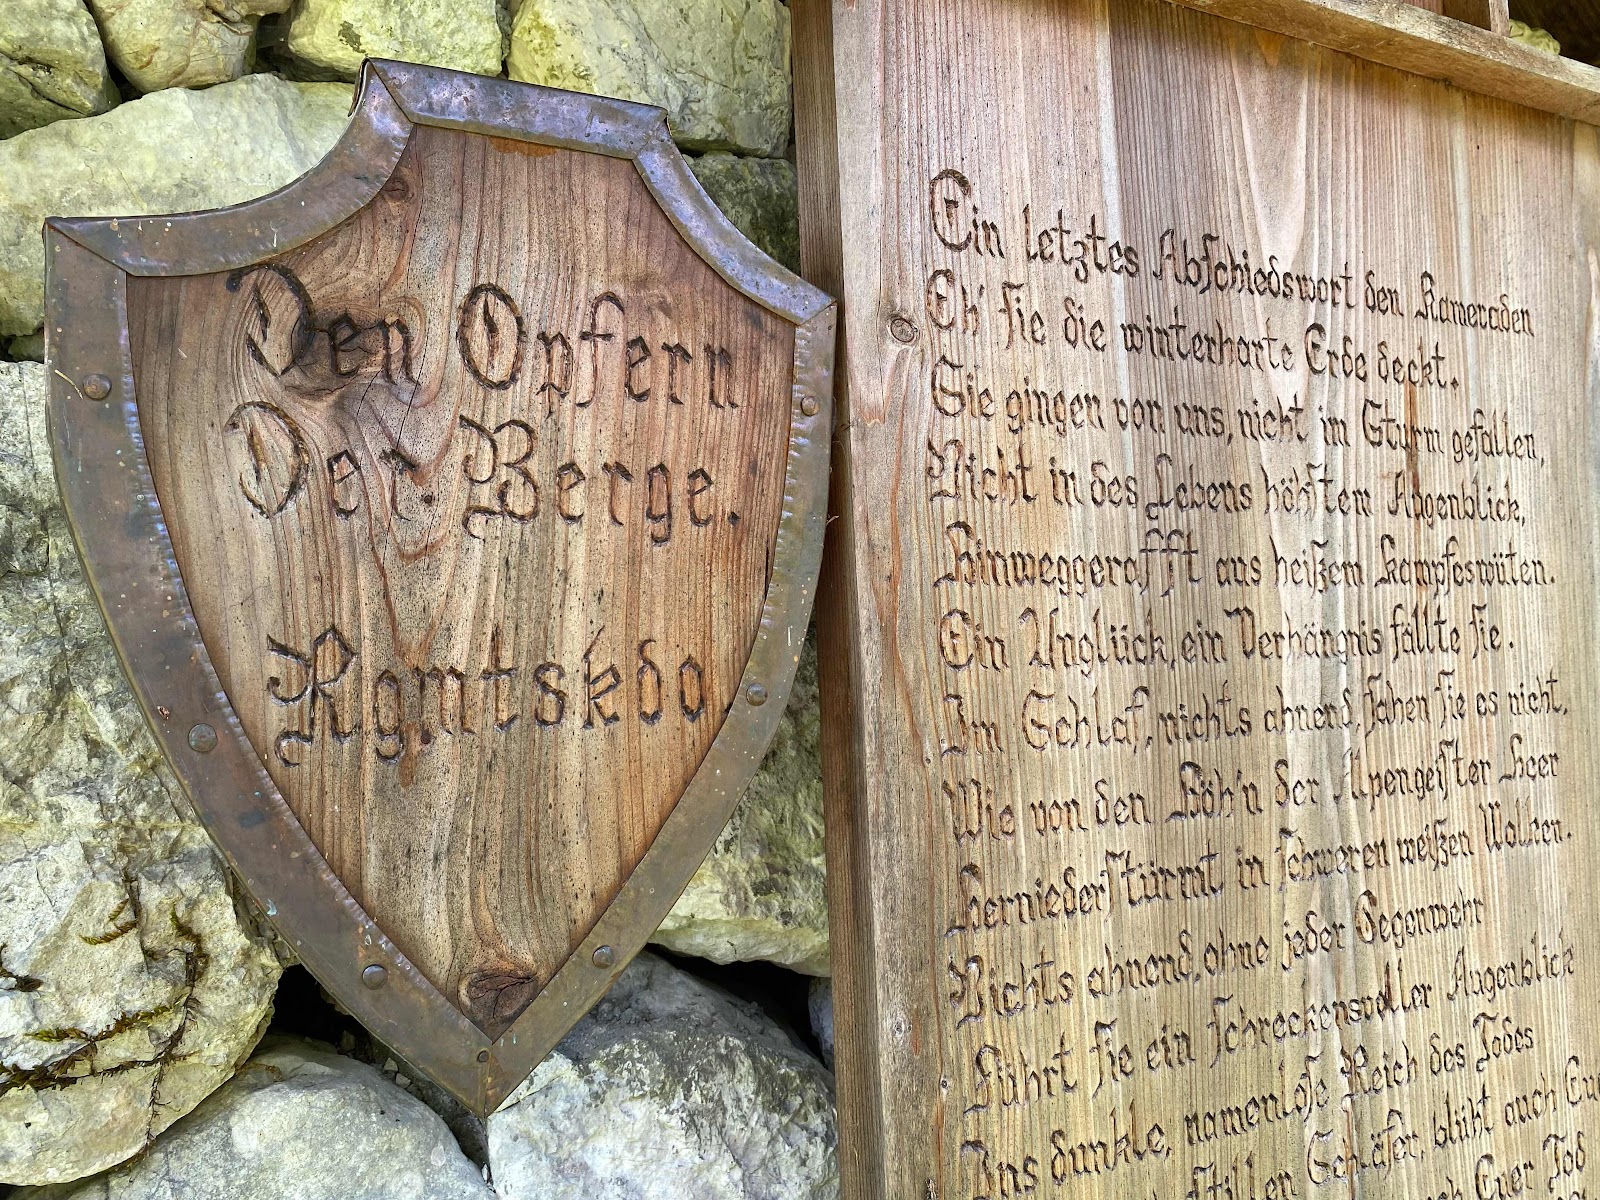 Den Opfern
Der Berge.
Rgmtskdo.
Ein letztes Abschiedswort den Kameraden
Eh' sie die winterharte Erde deckt.
Sie gingen von uns, nicht im Sturm gefallen,
Nicht in des Lebens höhstem Augenblick,
Hinweggerafft aus heißem Kampfeswüten.
Ein Unglück, ein Verhängnis fällte sie.
Im Schlaf, nichts ahnend, sahen sie es nicht,
Wie von den Höh'n der Alpengeister Heer
Herniederstürmt in schweren weißen Wolken.
Nichts ahnend, ohne jeder Gegenwehr
Führt sie ein schreckensvoller Augenblick
Ins dunkle, namenlose Reich des Todes
stillen Schläfer, blüht auch
Euer Tod